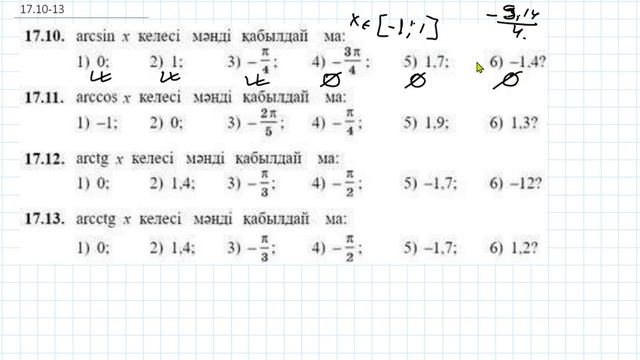 17.10-13
x ∈ [-1; 1]
- 3,14 / 4
17.10. arcsin x келесі мәнді қабылдай ма:
1) 0; 2) 1; 3) –π/4; 4) –3π/4; 5) 1,7; 6) –1,4?
17.11. arccos x келесі мәнді қабылдай ма:
1) –1; 2) 0; 3) –2π/5; 4) –π/4; 5) 1,9; 6) 1,3?
17.12. arctg x келесі мәнді қабылдай ма:
1) 0; 2) 1,4; 3) –π/3; 4) –π/2; 5) –1,7; 6) –12?
17.13. arcctg x келесі мәнді қабылдай ма:
1) 0; 2) 1,4; 3) –π/3; 4) –π/2; 5) –1,7; 6) 1,2?